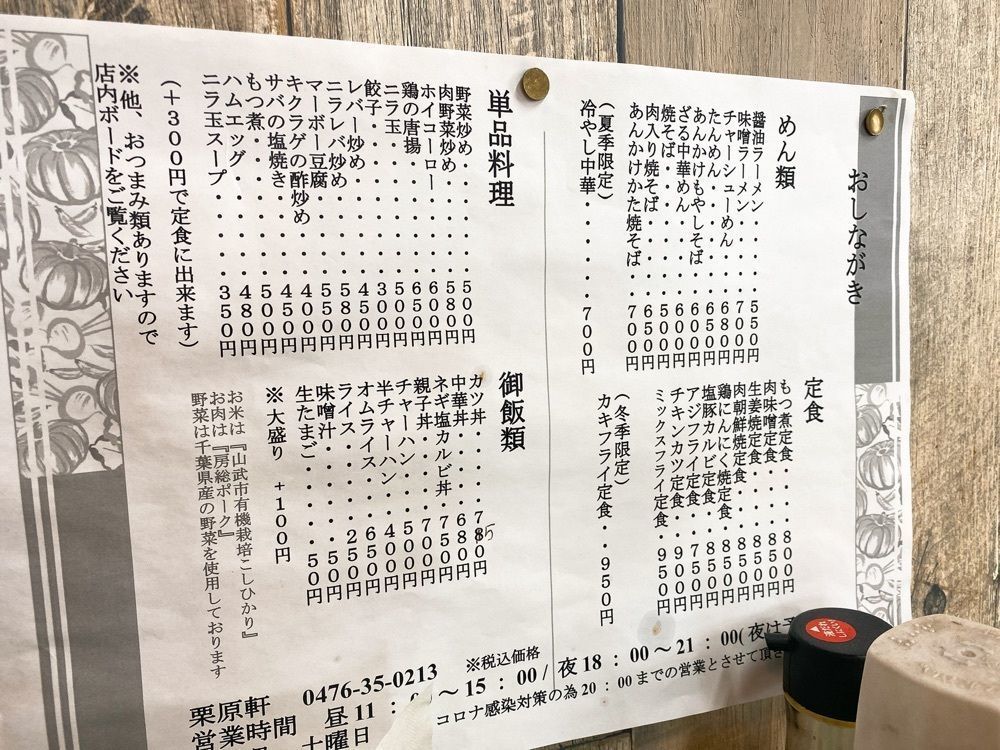 おしながき
めん類
醤油ラーメン・・・・・５５０円
味噌ラーメン・・・・・７００円
チャーシューめん・・・６８０円
たんめん・・・・・・・６５０円
あんかけもやしそば・・６００円
ざる中華めん・・・・・６００円
焼そば・・・・・・・・５００円
肉入り焼そば・・・・・６５０円
あんかけかた焼そば・・７００円
（夏季限定）
冷やし中華・・・・・７００円
定食
もつ煮定食・・・・８００円
肉味噌定食・・・・８５０円
生姜焼定食・・・・８５０円
肉朝鮮焼定食・・・８５０円
鶏にんにく焼定食・８５０円
塩豚カルビ定食・・８５０円
アジフライ定食・・７５０円
チキンカツ定食・・９００円
ミックスフライ定食・９５０円
（冬季限定）
カキフライ定食・・９５０円
単品料理
野菜炒め・・・・・・５００円
肉野菜炒め・・・・・５８０円
ホイコーロー・・・・６００円
鶏の唐揚・・・・・・６５０円
ニラ玉・・・・・・・５００円
餃子・・・・・・・・３００円
レバー炒め・・・・・５００円
ニラレバ炒め・・・・５８０円
マーボー豆腐・・・・５５０円
キクラゲの酢炒め・・４００円
サバの塩焼き・・・・４５０円
もつ煮・・・・・・・５００円
ハムエッグ・・・・・４８０円
ニラ玉スープ・・・・３５０円
（＋３００円で定食に出来ます）
※他、おつまみ類ありますので
店内ボードをご覧ください
御飯類
カツ丼・・・・・
中華丼・・・・・６８０円
ネギ塩カルビ丼・７５０円
親子丼・・・・・７００円
チャーハン・・・５００円
半チャーハン・・４００円
オムライス・・・６５０円
ライス・・・・・２５０円
味噌汁・・・・・・５０円
生たまご・・・・・５０円
※大盛り ＋１００円
お米は『山武市有機栽培こしひかり』
お肉は『房総ポーク』
野菜は千葉県産の野菜を使用しております
※税込価格
栗原軒 0476-35-0213
営業時間 昼11：～15：00/ 夜18：00～21：00(夜は
コロナ感染対策の為20：00までの営業とさせて頂
土曜日